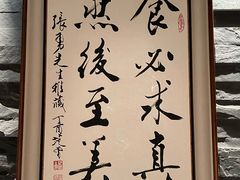 食必求真
然後至美
張勇先生雅藏